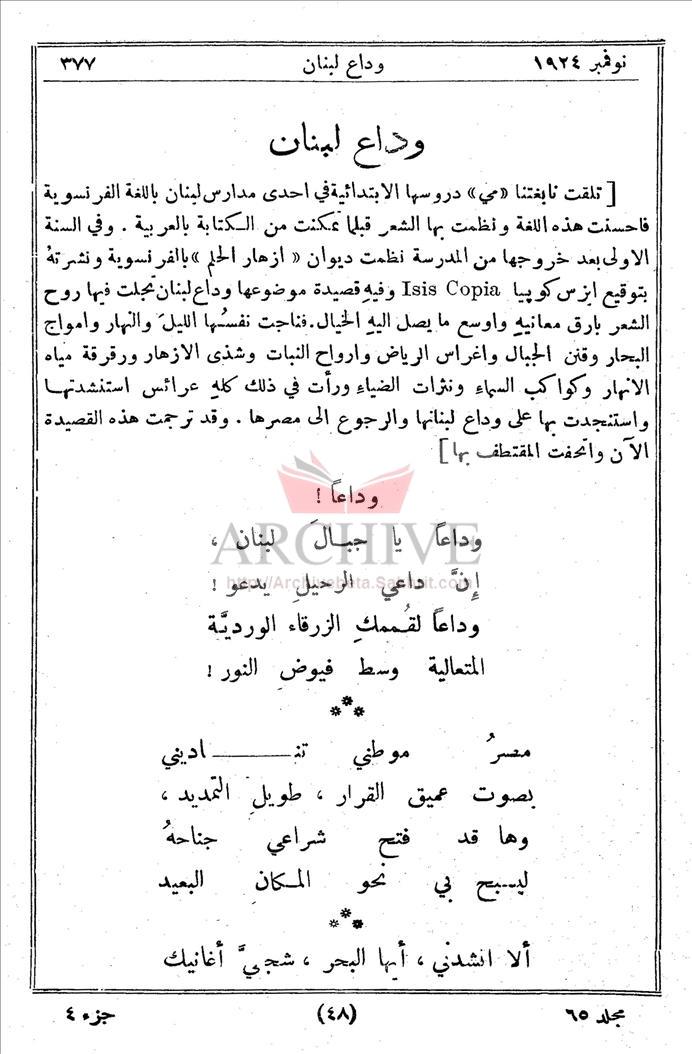 نوفمبر ١٩٢٤ وداع لبنان ٣٧٧
وداع لبنان
[ تلقت نابغتنا «مي» دروسها الابتدائية في احدى مدارس لبنان باللغة الفرنسوية
فاحسنت هذه اللغة ونظمت بها الشعر قبلما تمكنت من الكتابة بالعربية . وفي السنة
الاولى بعد خروجها من المدرسة نظمت ديوان « ازهار الحلم » بالفرنسوية ونشرتهُ
بتوقيع ايزس كوپيا Isis Copia وفيهِ قصيدة موضوعها وداع لبنان تجلت فيها روح
الشعر بارق معانيهِ واوسع ما يصل اليهِ الخيال. فناجت نفسُها الليلَ والنهار وامواج
البحار وقنن الجبال واغراس الرياض وارواح النبات وشذى الازهار ورقرقة مياه
الانهار وكواكب السماءِ ونثرات الضياءِ ورأت في ذلك كلهِ عرائس استنشدتها
واستنجدت بها على وداع لبنانها والرجوع الى مصرها . وقد ترجمت هذه القصيدة
الآن واتحفت المقتطف بها ]
وداعاً !
وداعاً يا جبالَ لبنان ،
إنَّ داعي الرحيلِ يدعو !
وداعاً لقُممكِ الزرقاء الورديَّة
المتعالية وسط فيوضِ النور !
***
مصرُ موطني تنـــــاديني
بصوت عميق القرار ، طويلِ التمديد ،
وها قد فتح شراعي جناحهُ
ليسبح بي نحو المكانِ البعيد
***
ألا انشدني ، أيها البحر ، شجيَّ أغانيك
مجلد ٦٥ (٤٨) جزء ٤
ARCHIVE
http://Archivebeta.Sakhrit.com